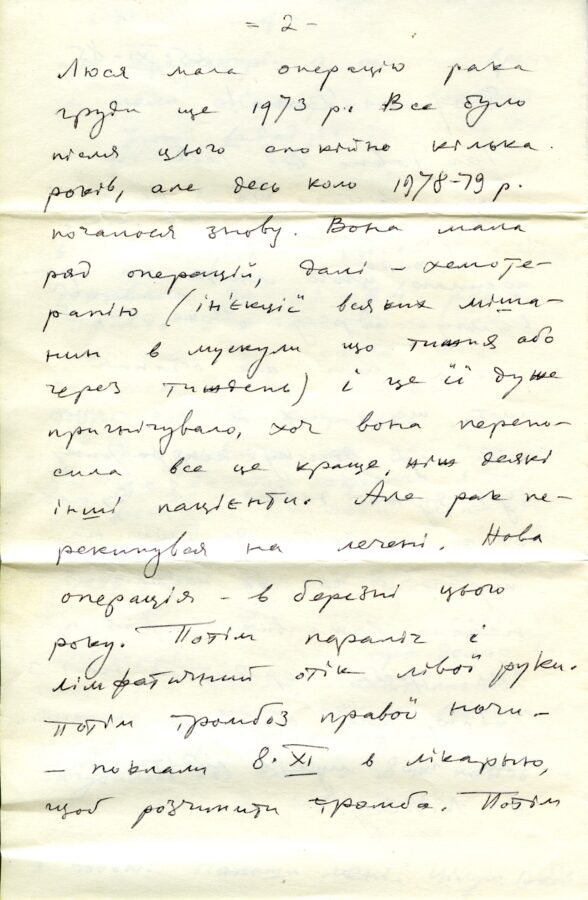 = 2 -
Люся мала операцію рака
груди ще 1973 р. Все було
після цього спокійно кілька
років, але десь коло 1978-79 р.
почалося знову. Вона мала
ряд операцій, далі – хемоте-
рапію (ін'єкції всяких міша-
нин в мускули що тижня або
через тиждень) і це її дуже
пригнічувало, хоч вона перено-
сила все це краще, ніж деякі
інші пацієнти. Але рак пе-
рекинувся на легені. Нова
операція – в березні цього
року. Потім параліч і
лімфатичний отік лівої руки.
Потім тромбоз правої ноги –
– поклали 8. XI в лікарню,
щоб розчинити тромба. Потім